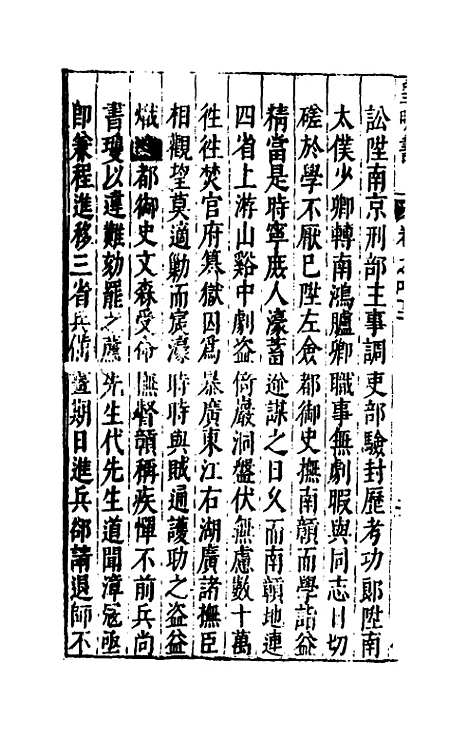 訟陞南京刑部主事調吏部驗封歷考功郎陞南
太僕少卿轉南鴻臚卿職事無劇暇與同志日切
磋於學不厭已陞左僉都御史撫南贛而學詣益
精當是時寧庶人濠蓄逆謀之日久而南贛地連
四省上游山谿中劇盜倚巖洞盤伏無慮數十萬
徃徃焚官府篡獄囚為暴廣東江右湖廣諸撫臣
相觀望莫適勦而宸濠時時與賊通護助之盜益
熾都御史文森受命撫督贛稱疾憚不前兵尚
書瓊以違難劾罷之薦先生代先生道聞漳冦亟
即兼程進移三省兵備尅期日進兵部請退師不